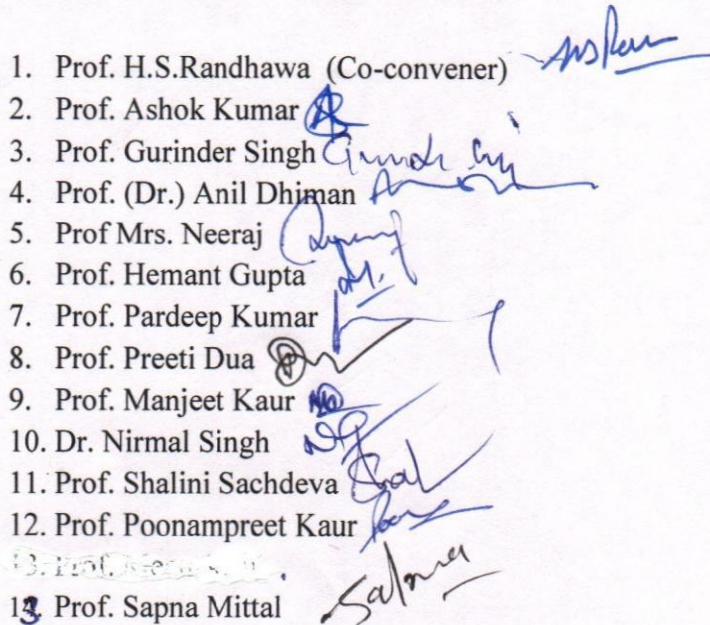 1. Prof. H.S.Randhawa (Co-convener)
2. Prof. Ashok Kumar
3. Prof. Gurinder Singh
4. Prof. (Dr.) Anil Dhiman
5. Prof Mrs. Neeraj
6. Prof. Hemant Gupta
7. Prof. Pardeep Kumar
8. Prof. Preeti Dua
9. Prof. Manjeet Kaur
10. Dr. Nirmal Singh
11. Prof. Shalini Sachdeva
12. Prof. Poonampreet Kaur
13. Prof.
13. Prof. Sapna Mittal Sapna